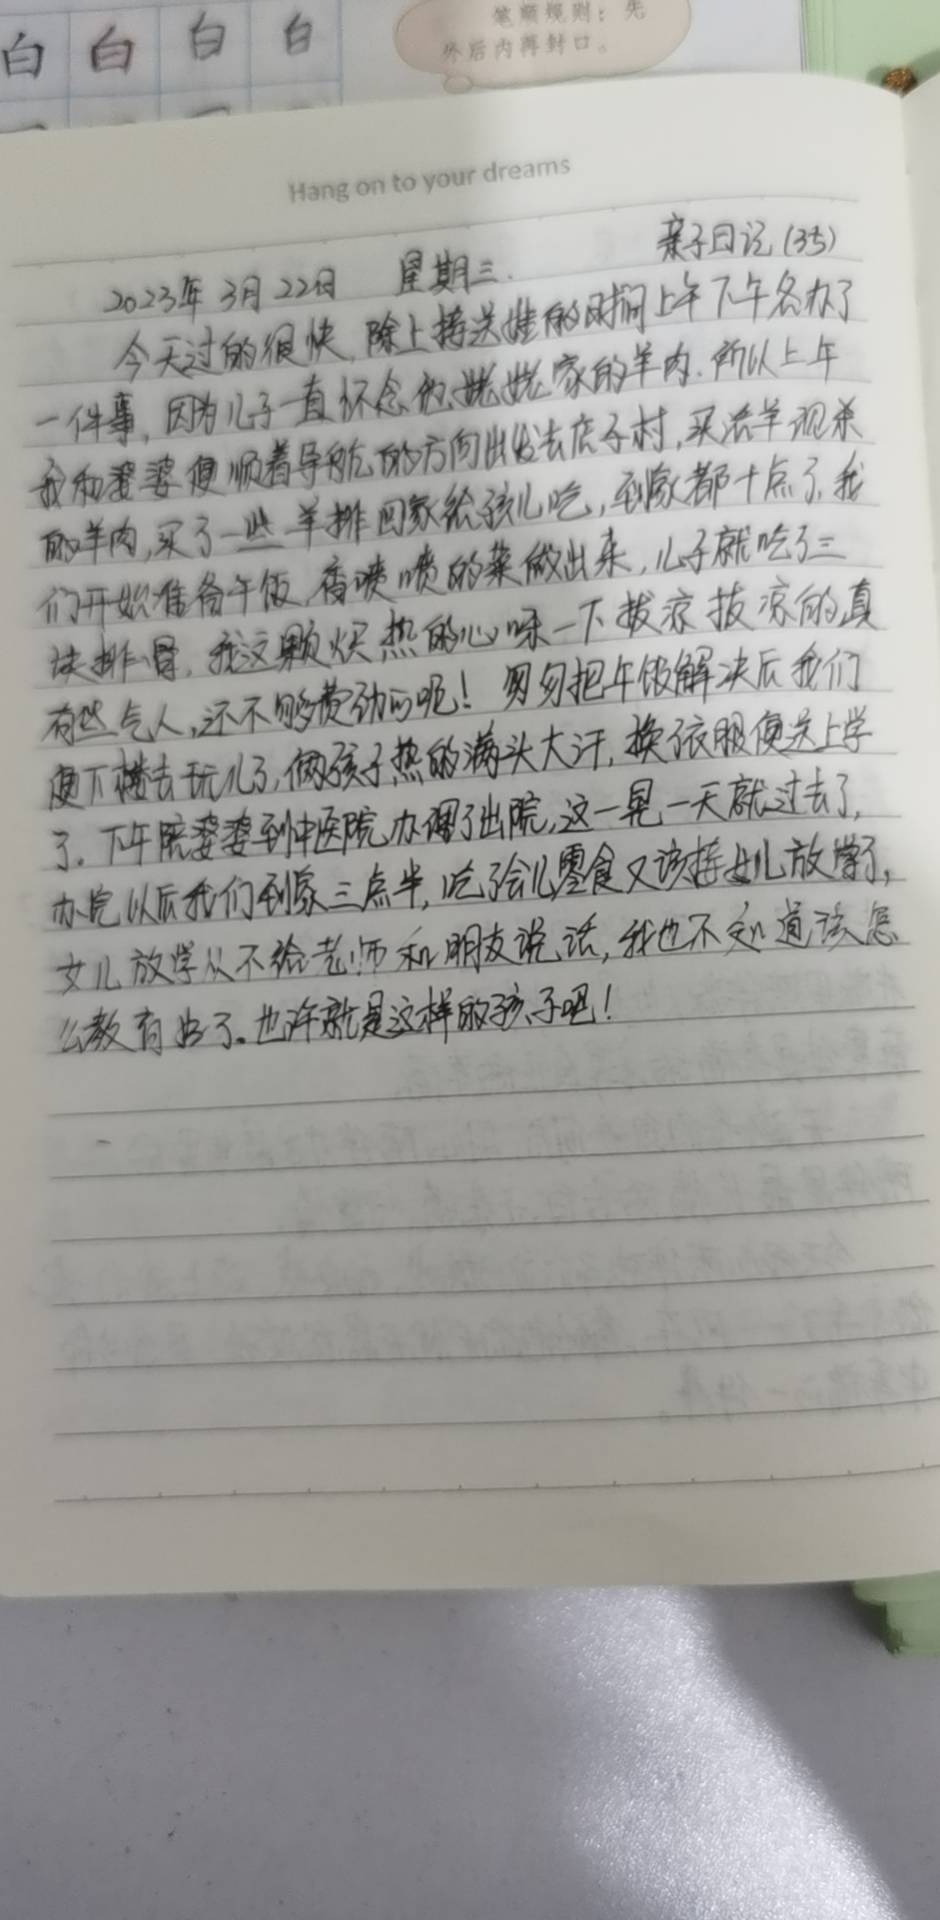 白 白 白 白
笔顺规则：先
外后内再封口。
Hang on to your dreams
亲子日记(35)
2023年3月22日 星期三.
今天过的很快,除上接送娃的时间上午下午各办了
一件事,因为儿子一直怀念他姥姥家的羊肉.所以上午
我和婆婆便顺着导航的方向出发去店子村,买活羊现杀
的羊肉,买了一些羊排回家给孩儿吃,到家都十点了,我
们开始准备午饭,香喷喷的菜做出来,儿子就吃了三
块排骨,我这颗火热的心呀一下拔凉拔凉的真
有些气人,还不够费劲的呢! 匆匆把午饭解决后我们
便下楼去玩儿了,俩孩子热的满头大汗,换了衣服便送上学
了.下午陪婆婆到中医院办理了出院,这一晃一天就过去了,
办完以后我们到家三点半,吃了会儿零食又该接女儿放学了,
女儿放学从不给老师和朋友说话,我也不知道该怎
么教育她了。也许就是这样的孩子吧!